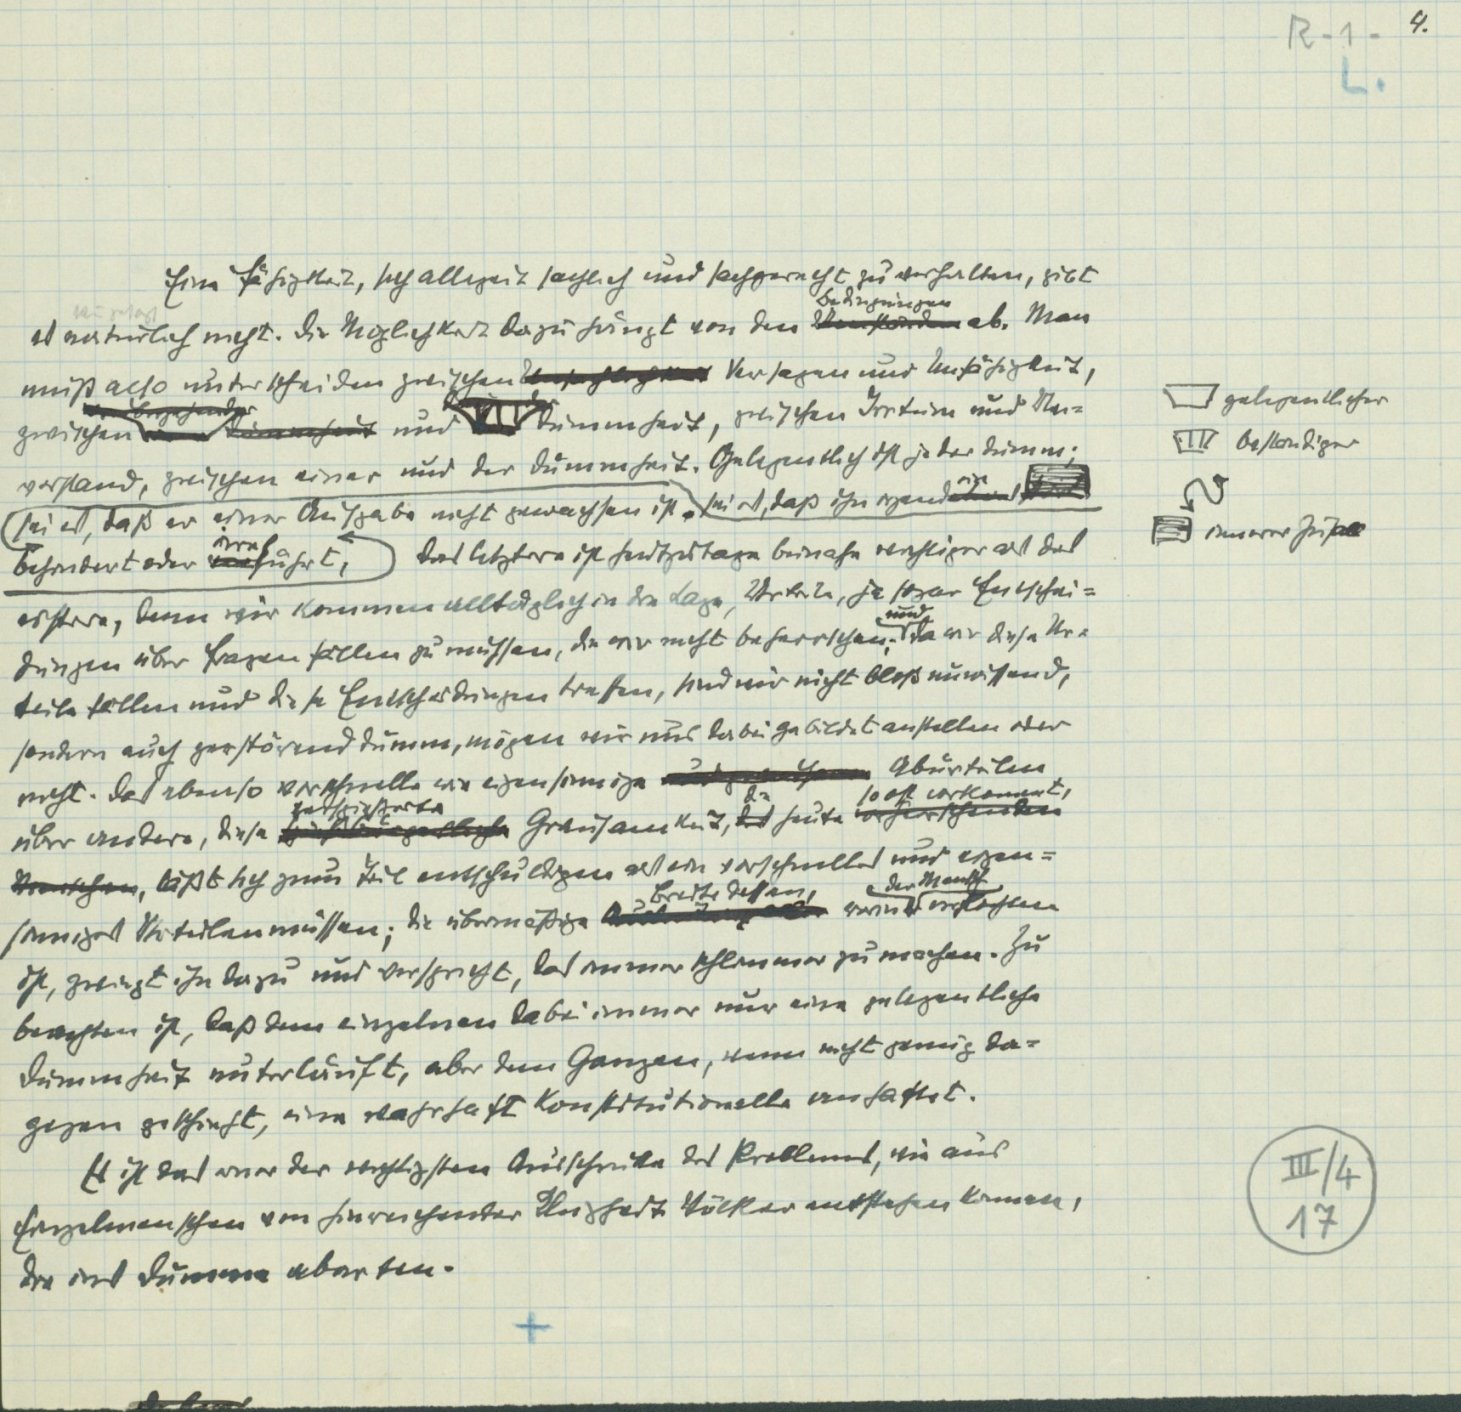 R-1- 4.
L.
Eine Fähigkeit, sich allezeit sachlich und sachgerecht zu verhalten, gibt
Bedingungen
es natürlich nicht. Die Möglichkeit dazu hängt von den Umständen ab. Man
muß also unterscheiden zwischen Versagen und Unfähigkeit,
zwischen und Dummheit, zwischen Irrtum und Un=
verstand, zwischen einer und der Dummheit. Gelegentlich ist jeder dumm;
sei es, daß er einer Aufgabe nicht gewachsen ist. sei es, daß ihn irgend ein
behindert oder irreführt, Das letztere ist heutzutage beinahe wichtiger als das
erstere, denn wir kommen alltäglich in die Lage, Urteile, ja sogar Entschei=
und
dungen über Fragen fällen zu müssen, die wir nicht beherrschen; da wir diese Ur=
teile fällen und diese Entscheidungen treffen, sind wir nicht bloß unwissend,
sondern auch zerstörend dumm, mögen wir uns dabei gebildet anstellen oder
nicht. Das ebenso vorschnelle wie eigensinnige Aburteilen
die so oft vorkommt,
über andere, diese Grausamkeit, das heute vorherrschenden
Menschen, läßt sich zum Teil entschuldigen als ein vorschnelles und eigen=
Breite dessen, der Mensch
sinniges Urteilenmüssen; die übermäßige worin verflochten
ist, zwingt ihn dazu und verspricht, das immer schlimmer zu machen. Zu
beachten ist, daß dem einzelnen dabei immer nur eine gelegentliche
Dummheit unterläuft, aber dem Ganzen, wenn nicht genug da=
gegen geschieht, eine wahrhaft konstitutionelle anhaftet.
Es ist das einer der wichtigsten Ausschnitte des Problems, wie aus
Einzelmenschen von hinreichender Klugheit Völker entstehen können,
die ins Dumme abarten.
gelegentlicher
beständiger
innerer Zufall
III/4
17